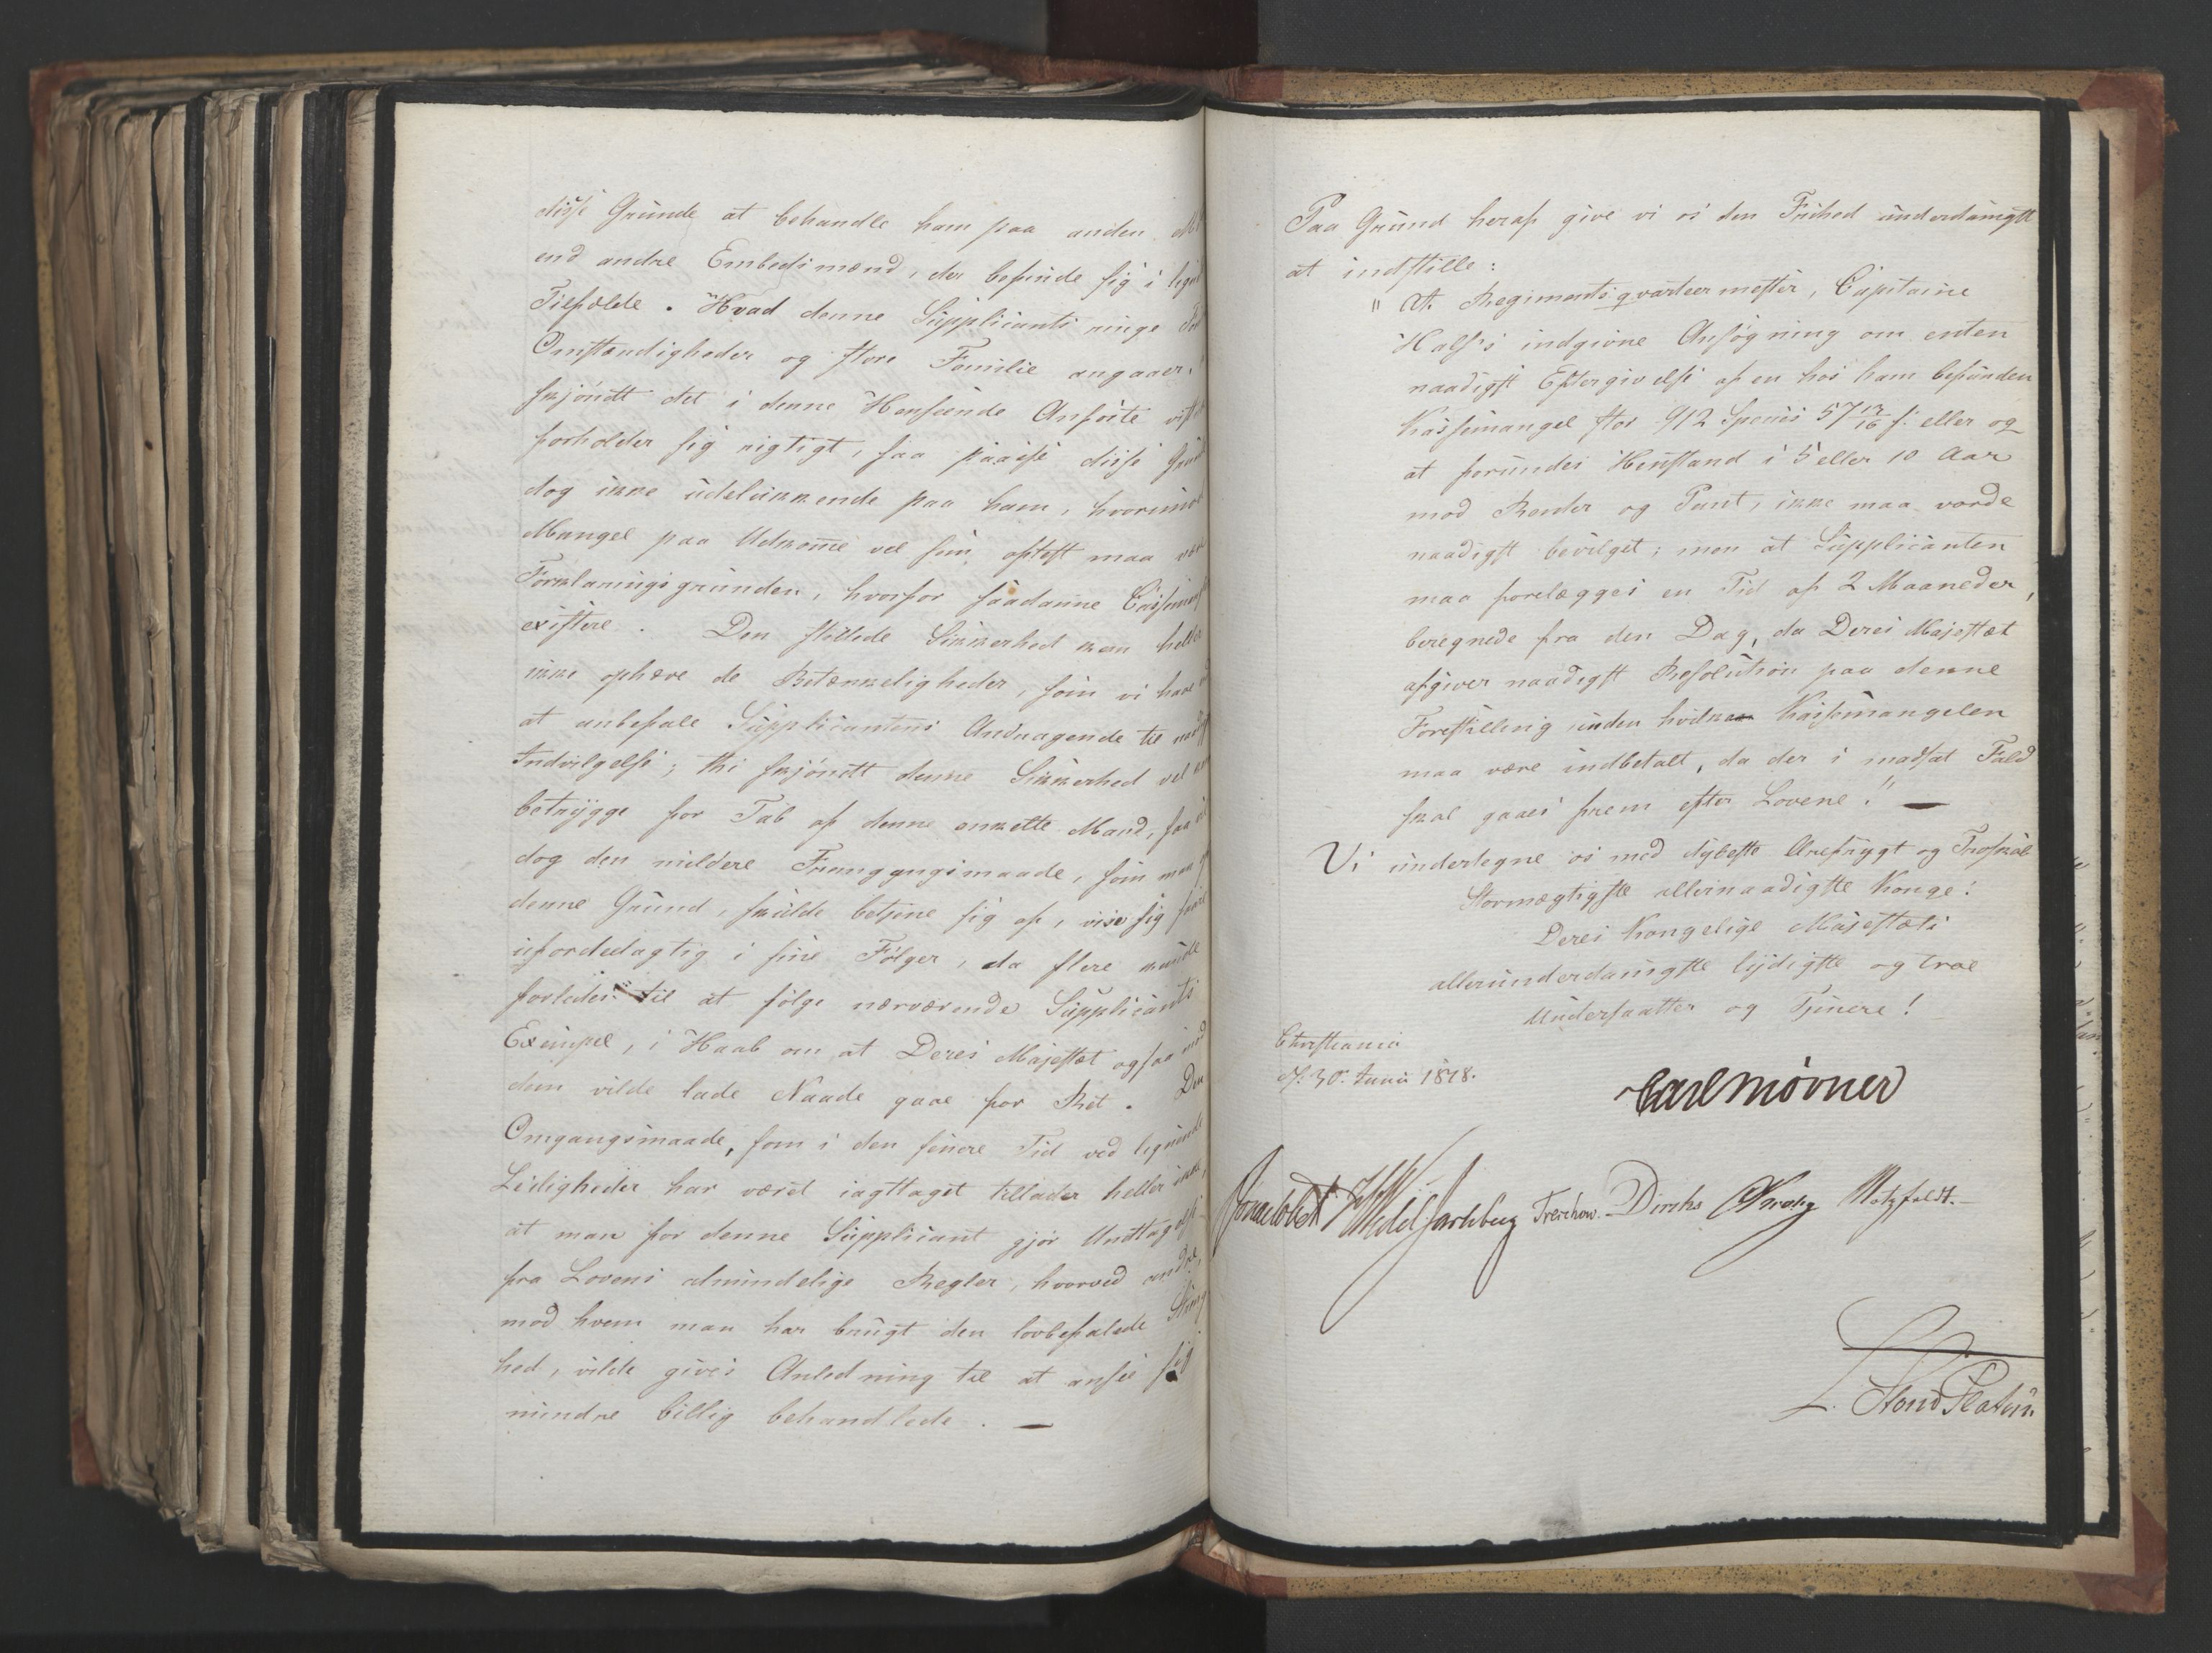 disse Grunde at behandle ham paa anden
end andre Embedsmænd, der befinde sig i
Tilfælde. Hvad denne Supplicants ringe
Omstændigheder og store Familie angaaer,
skjöndt det i denne Henseende Anförte
forholder sig rigtigt, saa passe disse
dog ikke udelukkende paa ham, hvorimod
Mangel paa Udkomme vel som oftest maa være
Forklaringsgrunden, hvorfor saadanne
existere. Den stillede Sikkerhed kan heller
ikke ophæve de Betænkeligheder, som vi have
at anbefale Supplicantens Andragende til
Indvilgelse; thi skjöndt denne Sikkerhed vel
betrygge for Tab af denne enkelte Mand, saa
dog den mildere Fremgangsmaade, som man
denne Grund, skulde betjene sig af, vise sig
ufordeelagtig i sine Fölger, da flere kunde
forledes til at fölge nærværende Supplicants
Exempel, i Haab om at Deres Majestæt ogsaa mod
dem vilde lade Naade gaae for Ret. Den
Omgangsmaade, som i den senere Tid ved lignende
Leiligheder har været iagttaget tillader heller ikke,
at man for denne Supplicant gjör Undtagelse
fra Lovens almindelige Regler, hvorved andre,
mod hvem man har brugt den lovbefalede Stræng
hed, vilde gives Anledning til at ansee sig
mindre billig behandlede. —
Paa Grund heraf give vi os den Frihed underdanigst
at indstille:
"At Regimentsqvarteermester, Capitaine
Halss's indgivne Ansögning om enten
naadigst Eftergivelse af en hos ham befunden
Kassemangel stor 912 Species 57 13/16 s: eller og
at forundes Henstand i 5 eller 10 Aar
mod Renter og Pant, ikke maa vorde
naadigst bevilget; men at Supplicanten
maa forelægges en Tid af 2 Maaneder,
beregnede fra den Dag, da Deres Majestæt
afgiver naadigst Resolution paa denne
Forestilling inden hvilken Kassemangelen
maa være indbetalt, da der i modsat Fald
skal gaaes frem efter Lovene!" —
Vi undertegne os med dybeste Ærefrygt og Troskab
Stormægtigste allernaadigste Konge!
Deres Kongelige Majestæts
allerunderdanigste lydigste og troe
Undersaatter og Tjenere!
Christiania
d: 30. Junii 1818.
Carl Mörner
Sommerhielm Wedel Jarlsberg Treschow. Diriks Krohg Motzfeldt.
L. Stoud Platou.